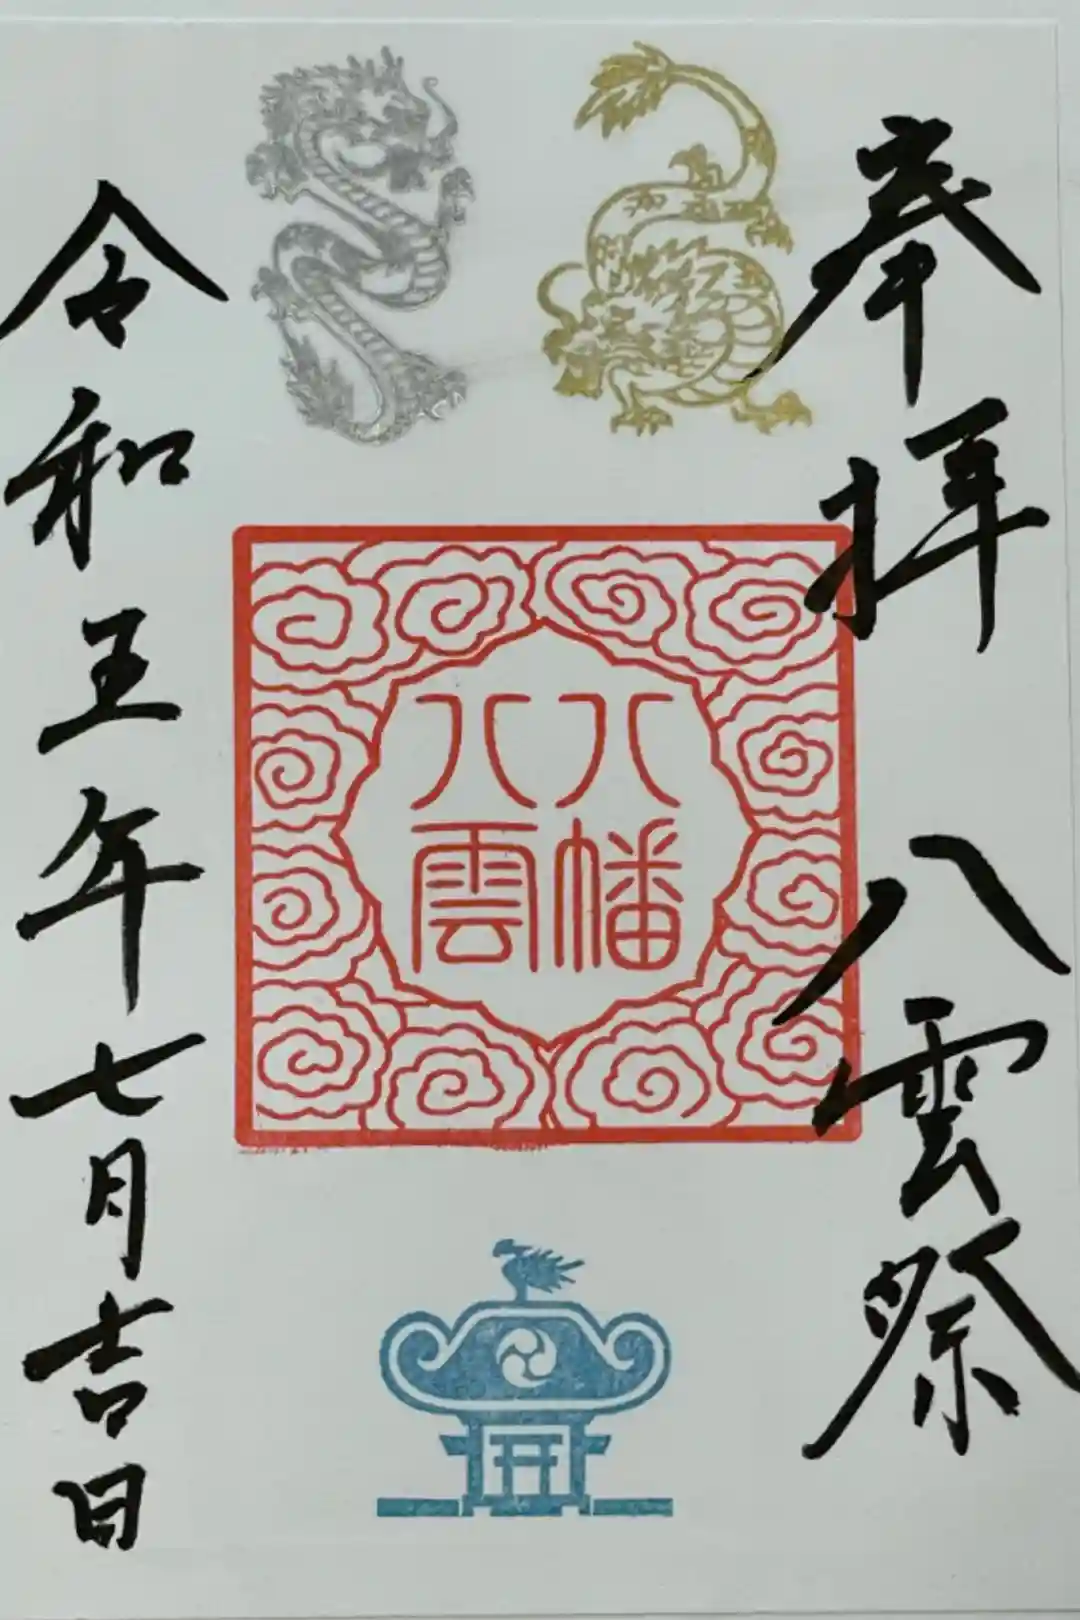 奉拝 八雲祭
八幡
八雲
令和五年七月吉日